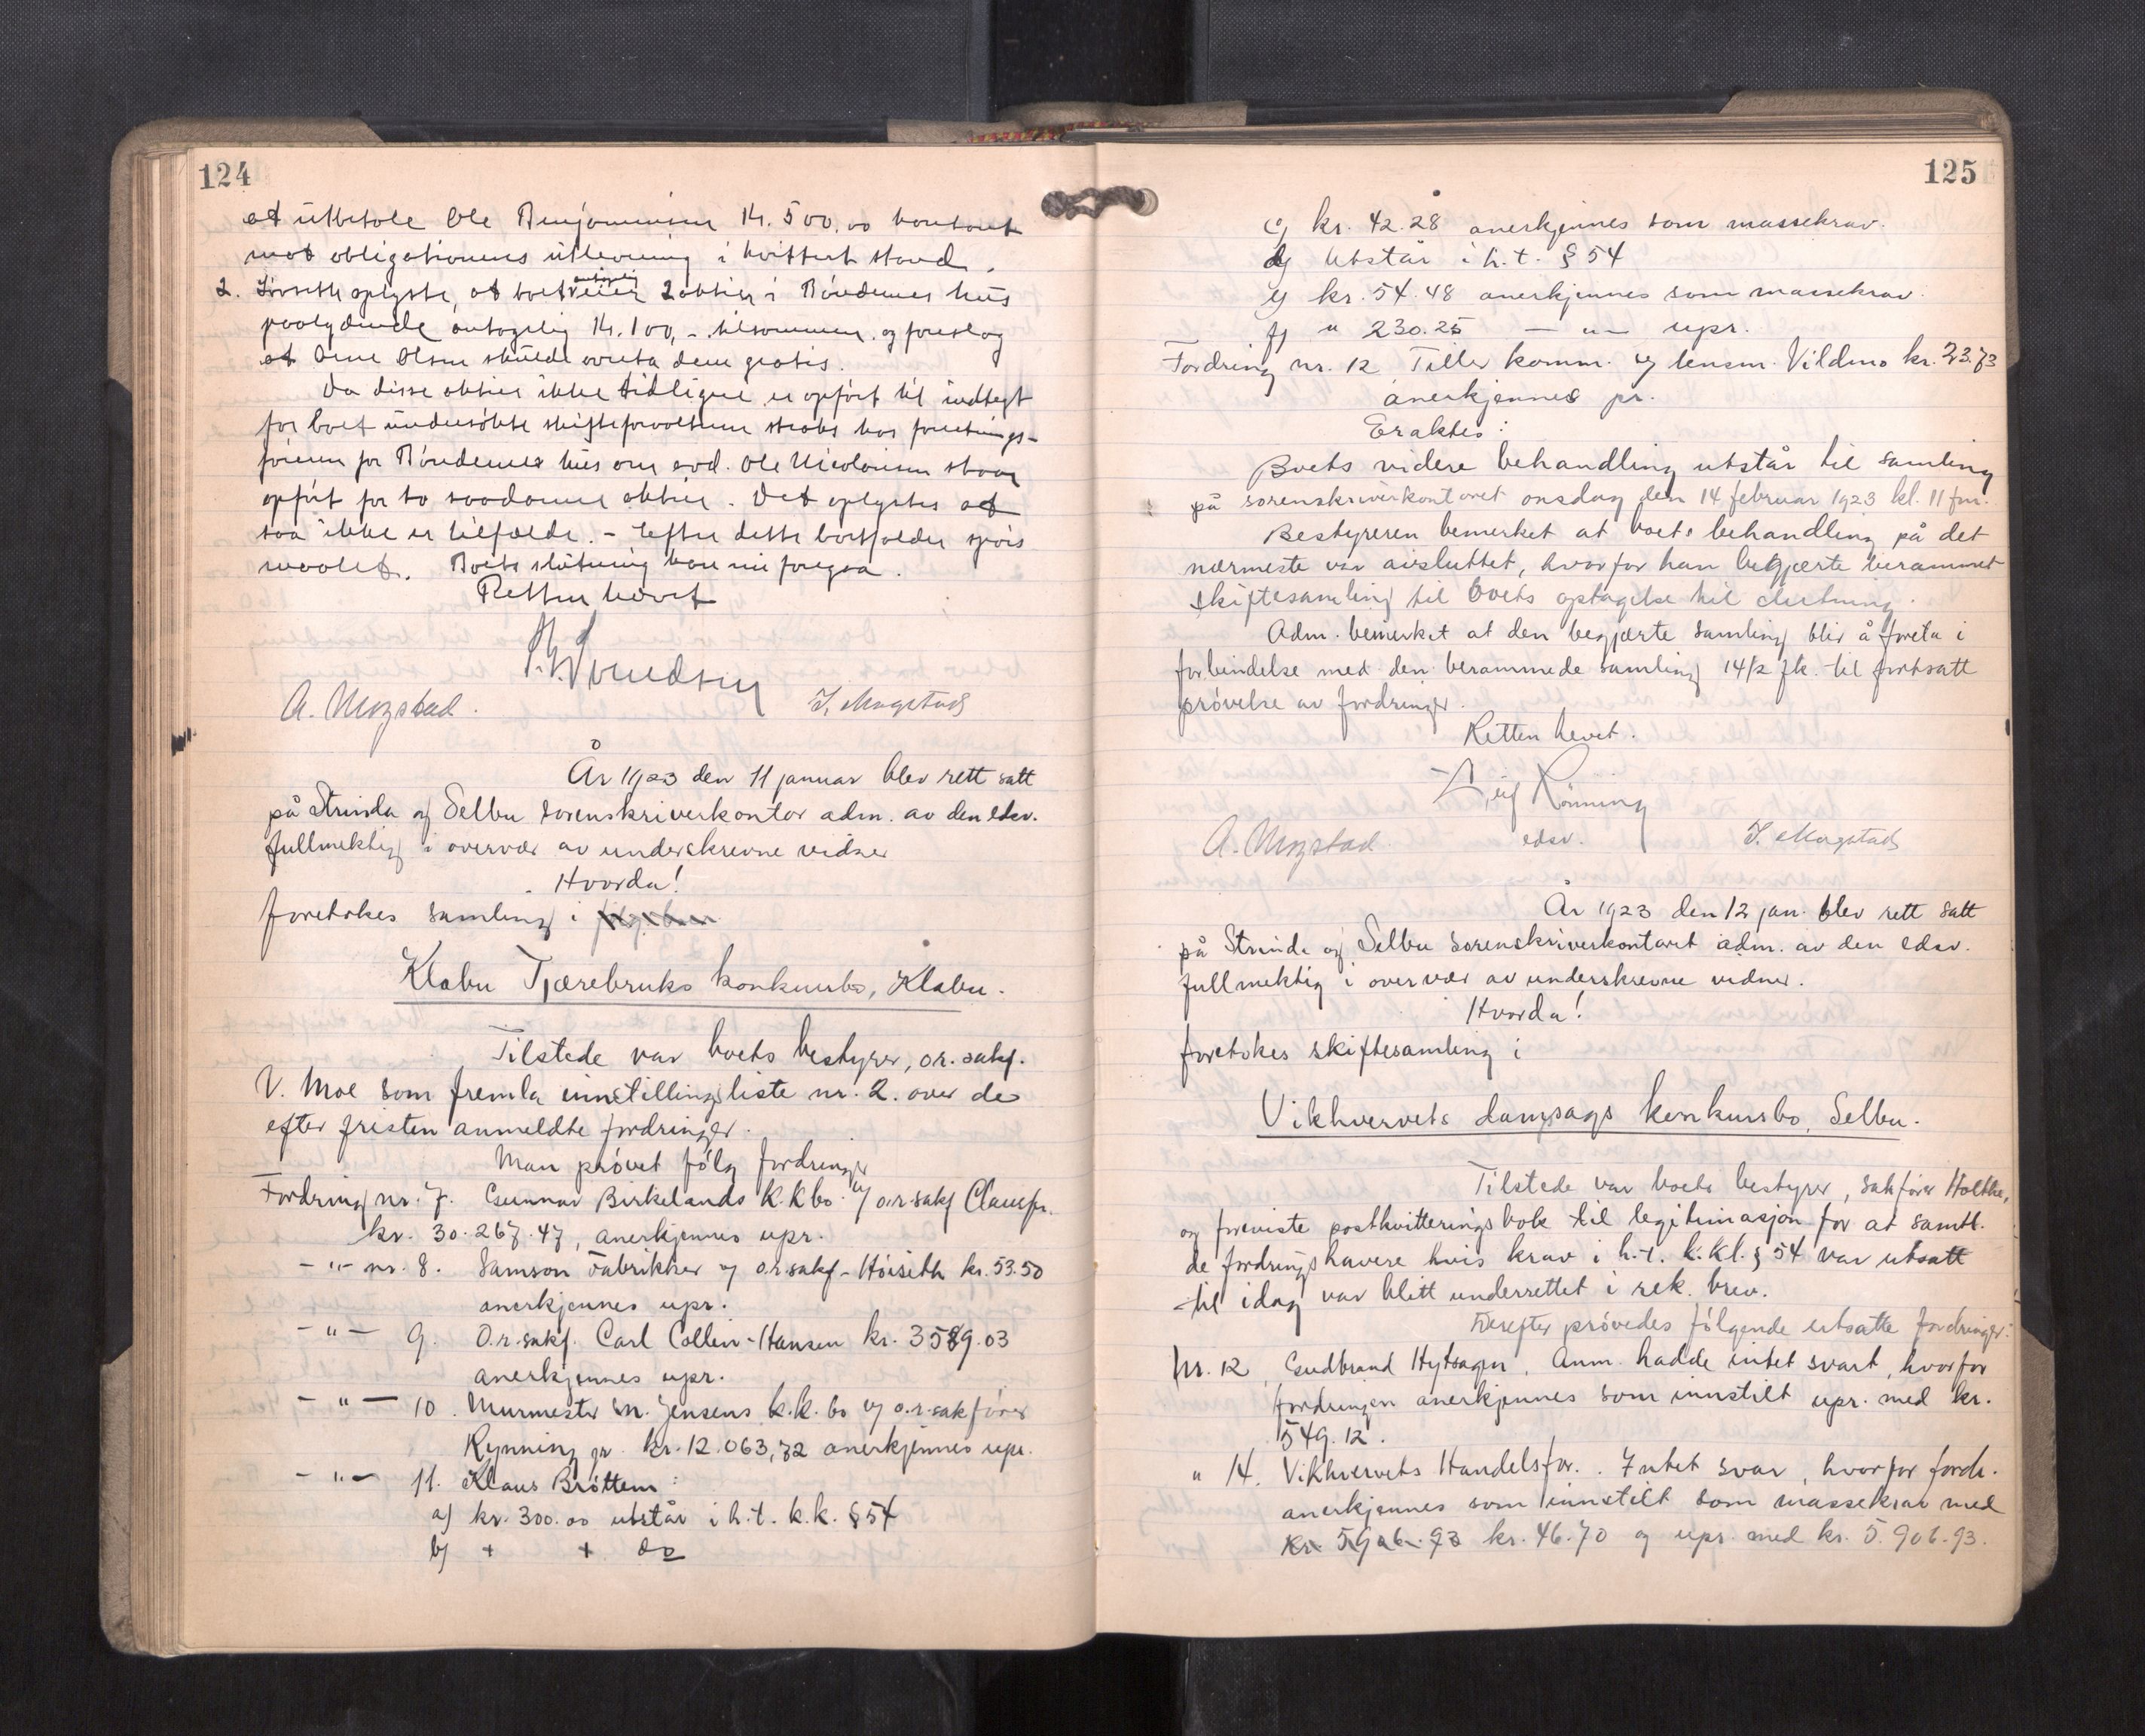 124
at utbetale Ole Benjaminsen Kr. 500,00 kontant
mot obligationens utlevering i kvittert stand.
2. oplyste, at boet antagelig eier 2 aktier i Böndernes hus
paalydende antagelig Kr. 100,- tilsammen og foreslog
at Arne Olsen skulde overta dem gratis.
Da disse aktier ikke tidligere er opfört til indtegt
for boet undersökte skifteforvalteren straks hos forretnings-
föreren for Böndernes hus om avd. Ole Nicolaisen staar
opfört for to saadanne aktier. Det oplystes at
saa ikke er tilfælde. - Efter dette bortfalder spörs
maalet. Boets slutning kan nu foregaa.
Retten hævet
A. Mogstad. I. Mogstad
År 1923 den 11 januar blev rett satt
på Strinda og Selbu sorenskriverkontor adm. av den edsv.
fullmektig i overvær av underskrevne vidner
Hvorda!
foretokes samling i
Klæbu Tjærebruks konkursbo, Klæbu.
Tilstede var boets bestyrer, o.r. sakf.
V. Moe som fremla innstillingsliste nr. 2. over de
efter fristen anmeldte fordringer.
Man prövet fölg fordringer
Fordring nr. 7. Gunnar Birkelands K.K bo v/ o.r. sakf Claus
kr. 30.267.47, anerkjennes upr.
- " - nr. 8. Samson Fabrikker v/ o.r. sakf. Höiseth kr. 53.50
anerkjennes upr.
- " - 9. O.r. sakf. Carl Collin-Hansen kr. 3589.03
anerkjennes upr.
- " - 10. Murmester M. Jensens k.k. bo v/ o.r. sakförer
Rynning jr. kr. 12.063,72 anerkjennes upr.
- " - 11. Klaus Bröttem:
a) kr. 300.00 utstår i h.t. k.k. § 54
b) + + do
125
c) kr. 42.28 anerkjennes som massekrav.
d) utstår i h.t. § 54
e) kr. 54.48 anerkjennes som massekrav.
f) " 230.25 - " - upr.
Fordring nr. 12 Tiller komm. v/ lensm. Vildmo kr. 23.73
anerkjennes pr.
Eraktes:
Boets videre behandling utstår til samling
på sorenskriverkontoret onsdag den 14 februar 1923 kl. 11 fm.
Bestyreren bemerket at boets behandling på det
nærmeste var avsluttet, hvorfor han begjærte berammet
skiftesamling til boets optagelse til slutning.
Adm. bemerket at den begjærte samling blir å foreta i
forbindelse med den berammede samling 14/2 fk. til fortsatt
prövelse av fordringer.
Retten hevet.
Leif Rönning
edsv.
A. Mogstad. I. Mogstad
År 1923 den 12 jan. blev rett satt
på Strinda og Selbu sorenskriverkontoret adm. av den edsv.
fullmektig i overvær av underskrevne vidner.
Hvorda!
foretokes skiftesamling i
Vikhvervets dampsags konkursbo, Selbu.
Tilstede var boets bestyrer, sakförer Holthe,
og foreviste postkvitteringsbok til legitimasjon for at samtl.
de fordringshavere hvis krav i h.t. k.kl. § 54 var utsatt
til idag var blitt underrettet i rek. brev.
Derefter prövedes fölgende utsatte fordringer:
Nr. 12, Gudbrand Hytsagen. Anm. hadde intet svart, hvorfor
fordringen anerkjennes som innstilt upr. med kr.
549.12.
" 14. Vikhvervets Handelsfor. Intet svar, hvorfor fordr.
anerkjennes som innstilt som massekrav med
kr 5906.93 kr. 46.70 og upr. med kr. 5.906.93.